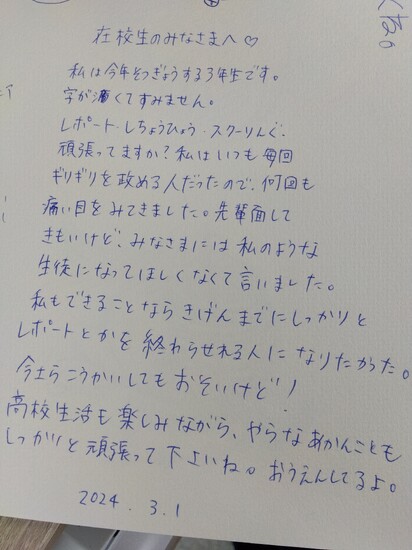 在校生のみなさまへ♡
私は今年そつぎょうする3年生です。
字が濃くてすみません。
レポート・しちょうひょう・スクーリんぐ、
頑張ってますか?私はいつも毎回
ギリギリを攻める人だったので、何回も
痛い目をみてきました。先輩面して
きもいけど、みなさまには私のような
生徒になってほしくなくて言いました。
私もできることならきげんまでにしっかりと
レポートとかを終わらせれる人になりたかった。
今さらこうかいしてもおそいけど!
高校生活も楽しみながら、やらなあかんことも
しっかりと頑張って下さいね。おうえんしてるよ。
2024.3.1